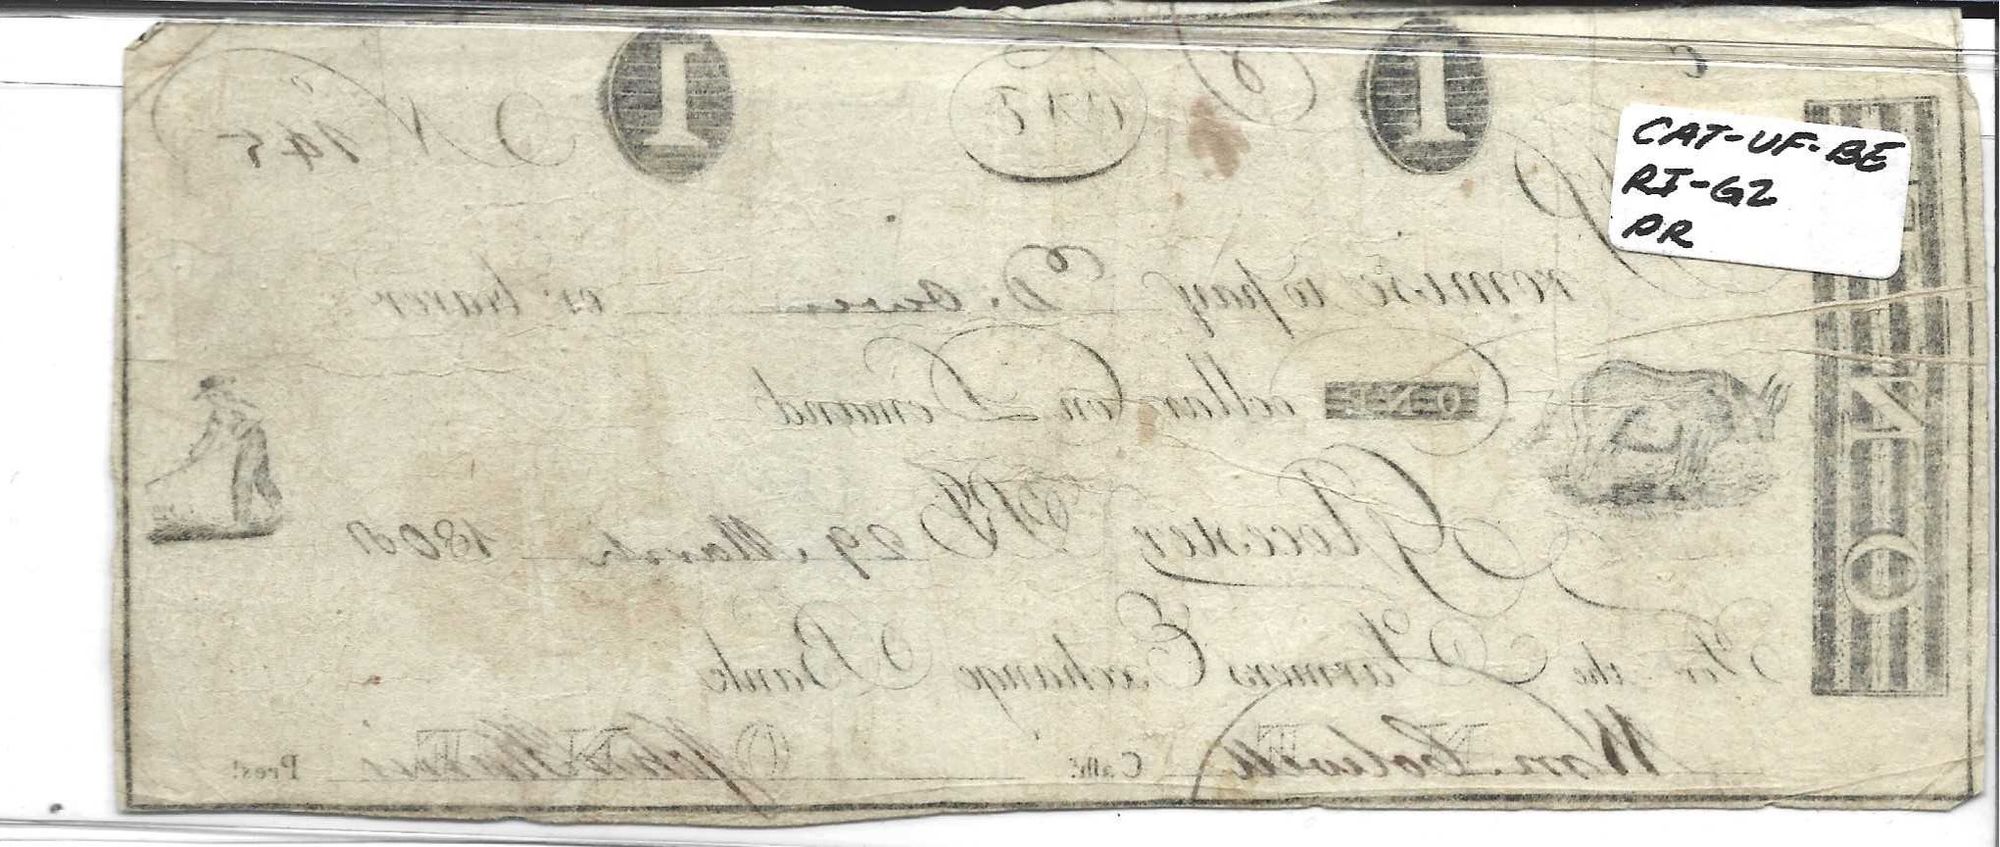 CAT-UF-BE
RI-G2
PR
1 1 N 145
Promise to pay D. Owen or bearer
ONE Dollar on Demand
Glocester 29 March 1808
For the Farmers Exchange Bank
Wm. Colwell Cashr. John Harris Prest.